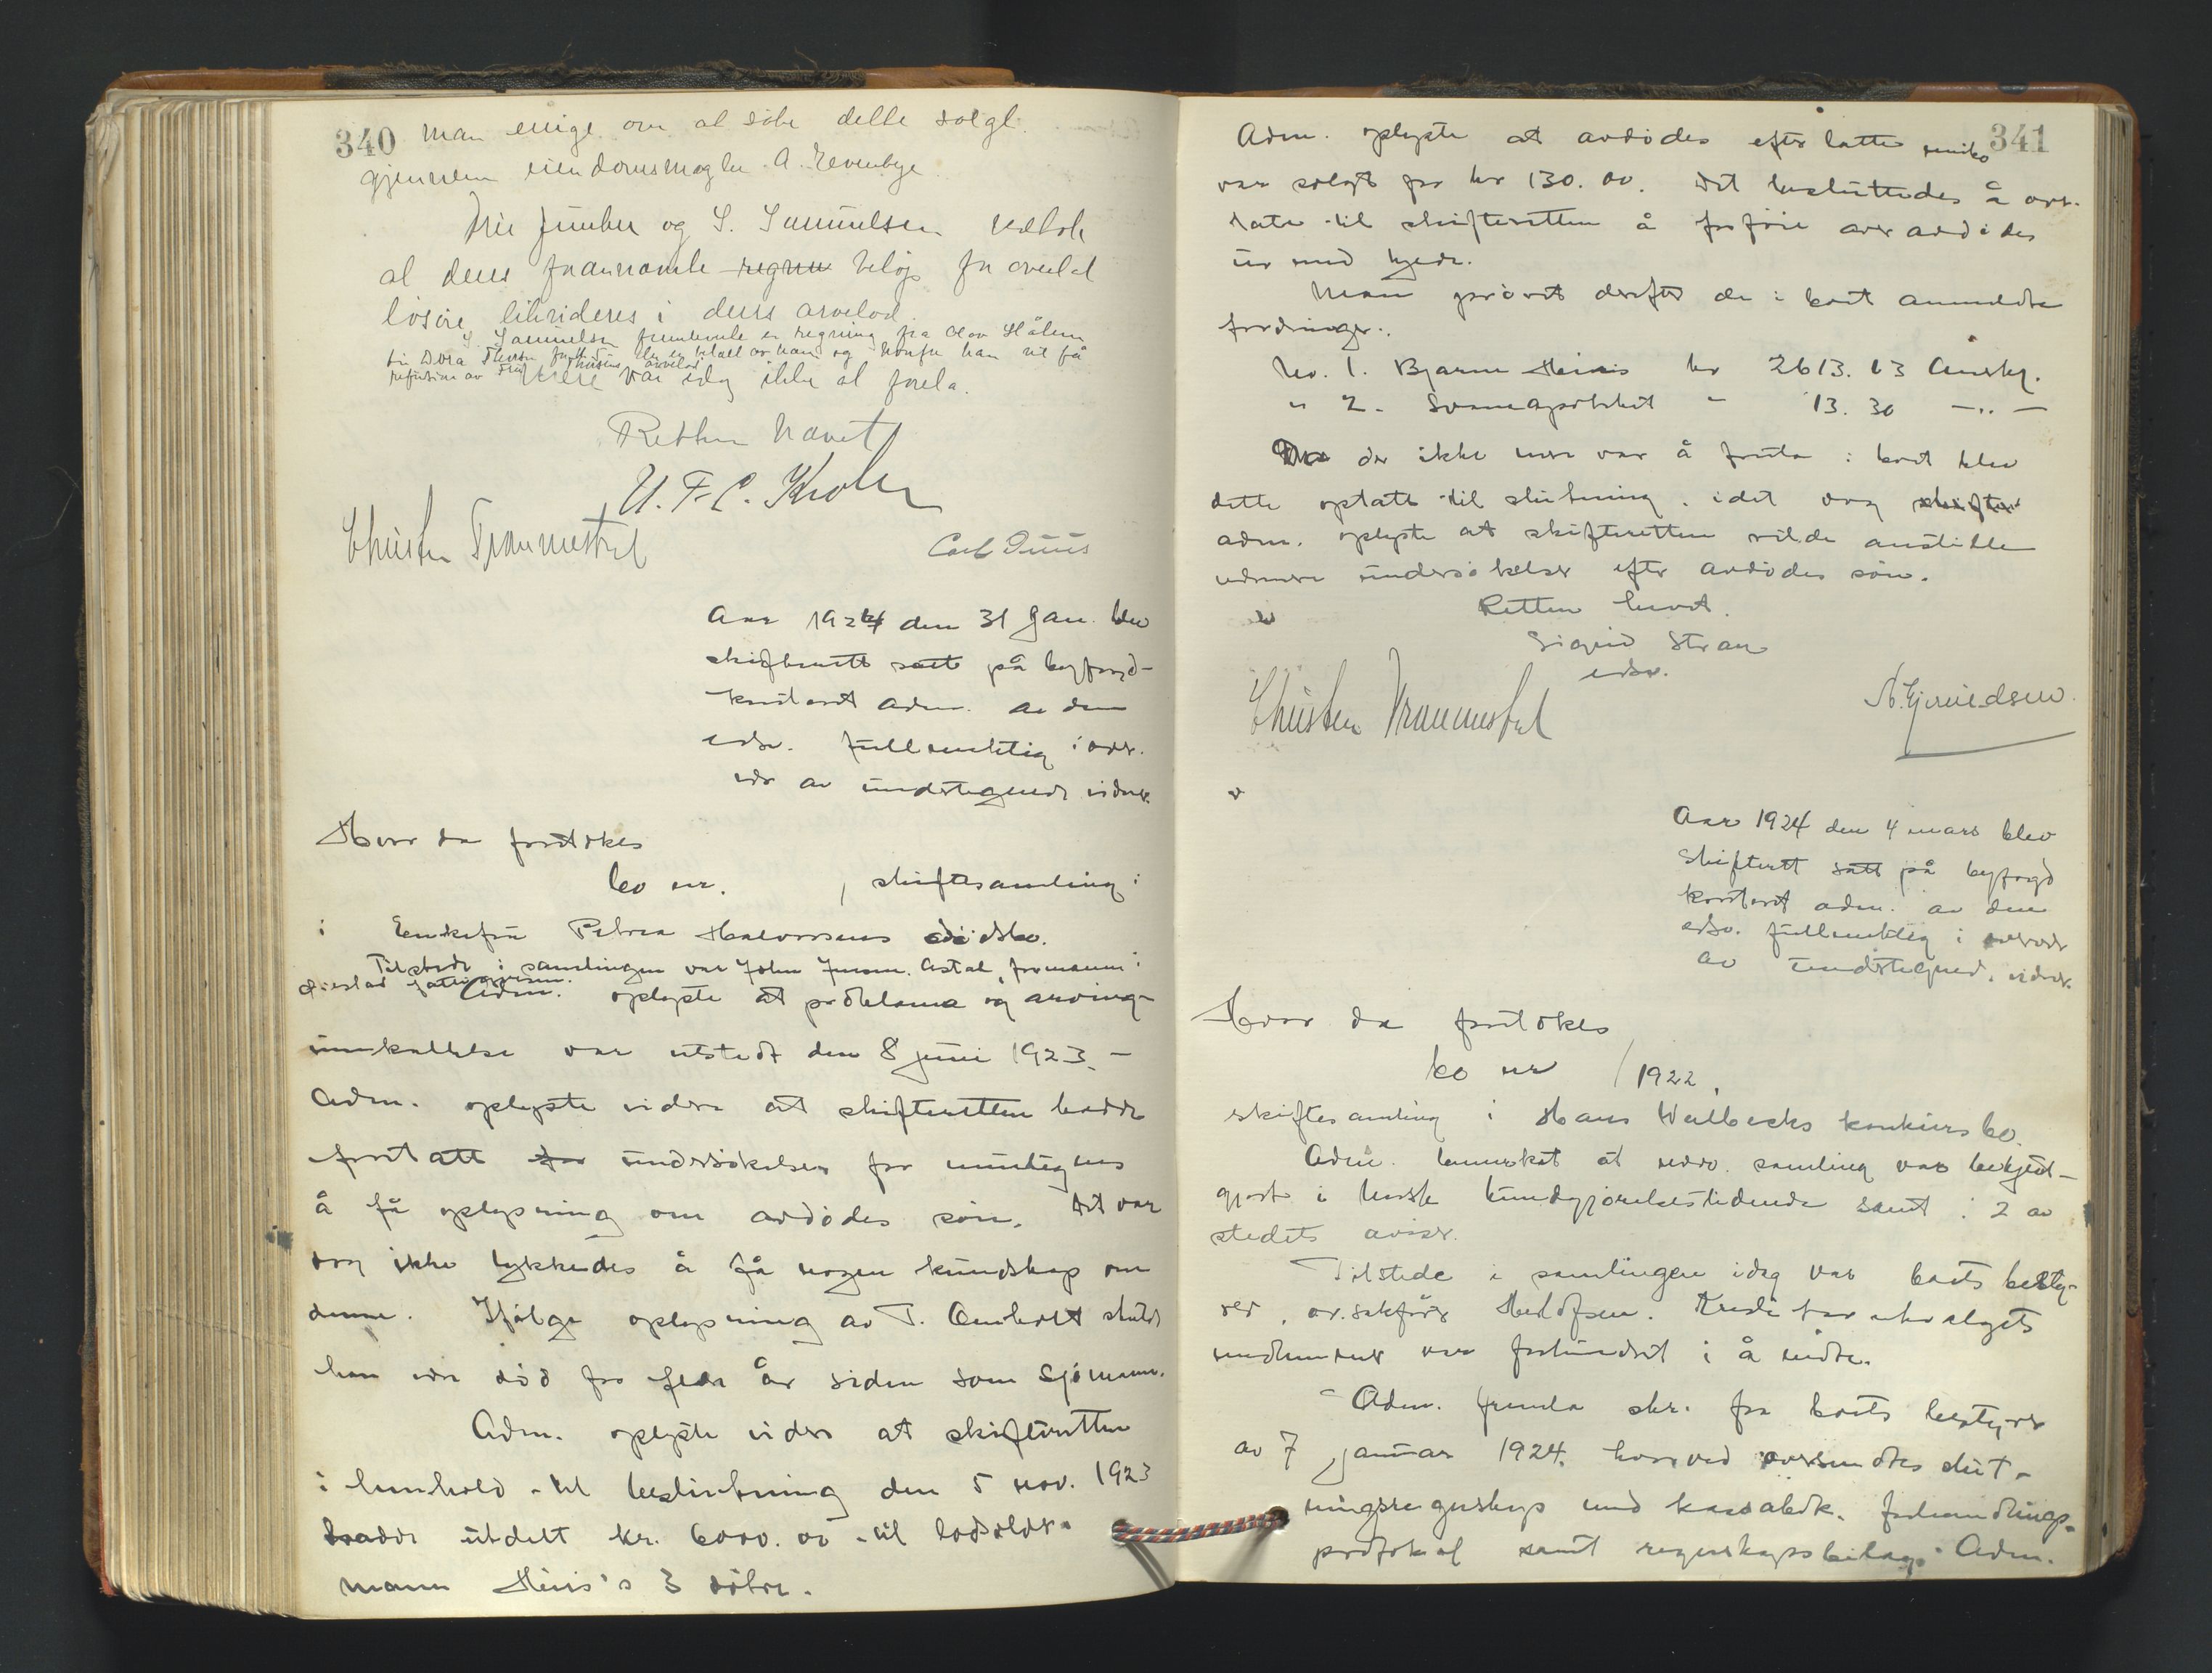 340 man enige om at söke dette solgt
gjennem eiendomsmægler A. Evenbye.
Frie Junker og S. Samuelsen vedtok
at deres fraavnævnte regnu beløp for overtat
løsøre likvideres i deres arvelod.
S. Samuelsen fremlevnte en regning fra Olav Hålem
til Dora Thorsen for kr. der er betalt av ham og hvorfor han vil få
refusion av Fru Thorsens arvelod.
Mere var idag ikke at forela.
Retten hævet
U. F. C. Krohn
Christen Trommestad
Carl Duus
Aar 1924 den 31 Jan. blev
skifterett satt på byfogd-
kontoret adm. av den
edsv. fullmektig i overv.
vær av undertegnede vidner.
Hvor da foretokes
bo nr. / skiftesamling i
i Enkefru Petrea Halvorsens dödsbo.
Tilstede i samlingen var John Jensen Astal, formann i
Öiestad fattigvesen.
Adm. oplyste at proklama og arving-
innkallelse var utstedt den 8 juni 1923. -
Adm. oplyste videre at skifteretten hadde
foretatt for undersökelser for muligens
å få oplysning om avdödes sön. Det var
dog ikke lykkedes å få nogen kundskap om
denne. Ifölge oplysning av T. Omholt skulde
han være död for flere år siden som sjömann.
Adm. oplyste videre at skifteretten
i henhold til beslutning den 5 nov. 1923
hadde utdelt kr. 6000.00 til lodsolder-
mann Heins's 3 dötre.
341
Adm. oplyste at avdödes efterlatte innbo
var solgt for kr 130.00. Det besluttedes å over-
late til skifteretten å forföie over avdödes
ur med kjede.
Man prövet derefter de i boet anmeldte
fordringer.
No. 1. Bjarne Heins kr 2613.13 Anerkj.
" 2. Svaneapoteket " 13.30 -"-
Da der ikke mere var å foreta i boet blev
dette optatt til slutning, idet dog skifter
adm. oplyste at skifteretten vilde anstille
nærmere undersökelser efter avdödes sön.
Retten hevet.
Sigrid Stray
edsv.
Christen Trommestad
N. Gjeruldsen
Aar 1924 den 4 mars blev
skifterett satt på byfogd
kontoret adm. av den
edsv. fullmektig i overvær
av undertegned. vidner.
Hvor da foretokes
bo nr / 1922.
skiftesamling i Hans Wallbecks konkursbo.
Adm. bemerket at nærv. samling var bekjent-
gjort i Norsk Kundgjörelsestidende samt i 2 av
stedets aviser.
Tilstede i samlingen idag var boets besty-
rer, o.r.sakförer Herlofsen. Kreditorutvalgets
medlemmer var forhindret i å möte.
Adm. fremla skr. fra boets bestyrer
av 7 januar 1924. hvorved oversendtes slut-
ningsregnskap med kassabok. forhandlings-
protokol samt regnskapsbilage. Adm.